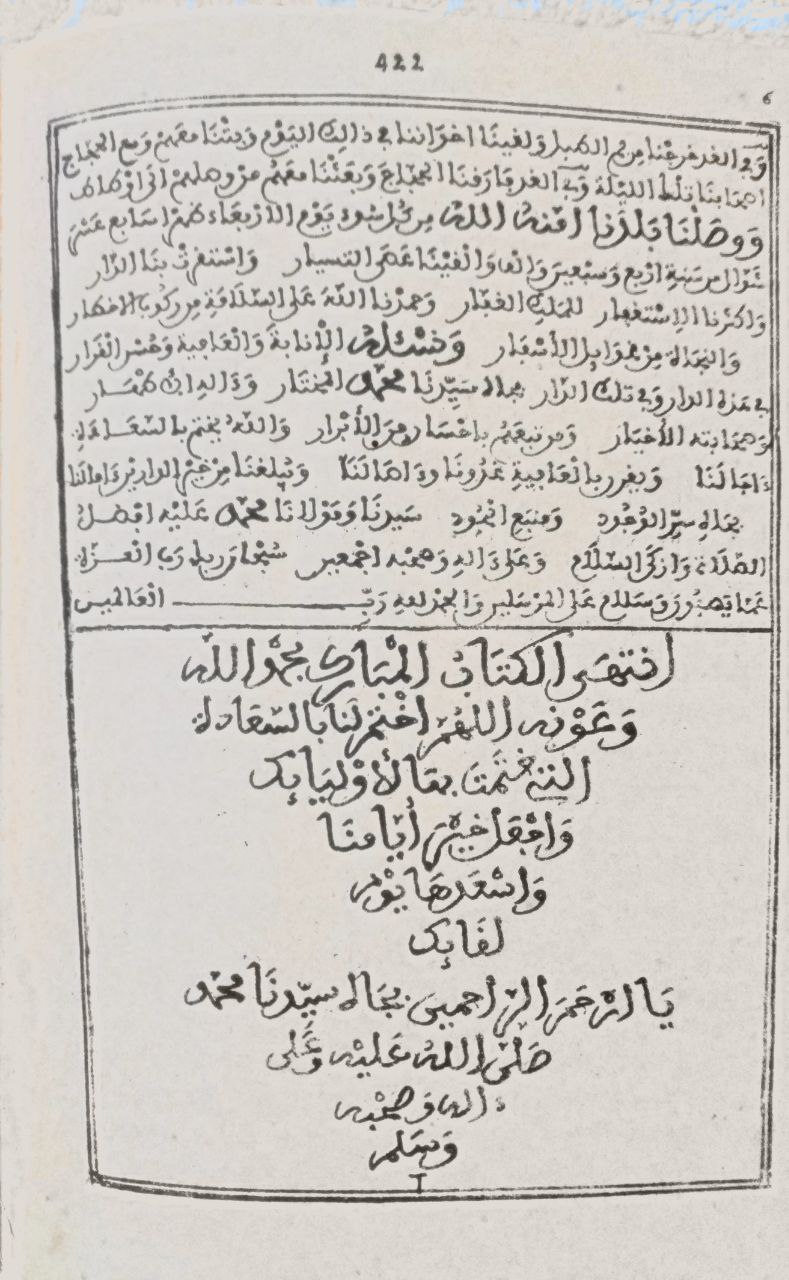 422
6
وفي الغد خرجنا من الصبار ولقينا اخواننا في ذالك اليوم وبتنا معهم ومع الحجاج
اصحابنا تلك الليلة وفي الغد فارقنا الحجاج وبعثنا معهم من وصلهم الى اوطانه
ووصلنا بلدنا امنه الله من كل سوء يوم الاربعاء سابع عشر
شوال من سنة اربع وسبعين والف والقينا عصى التسيار واستقرت بنا الدار
واكثرنا الاستغفار للملك الغفار وحمدنا الله على السلامة من ركوب الاخطار
والنجاة من الأسفار ونسئله الإنابة والعافية وحسن القرار
في هذه الدار وفي تلك الدار بجاه سيدنا محمد المختار وءاله
وصحابته الأخيار ومن تبعهم باحسان من الأبرار والله يختم بالسعادة
ءاجالنا ويقرن بالعافية غدونا وءاصالنا ويبلغنا من خير الدارين ءامالنا
بجاه سر الوجود ومنبع الجود سيدنا ومولانا محمد عليه افضل
الصلاة وازكى السلام وعلى ءاله وصحبه اجمعين سبحان ربك رب العزة
عما يصفون وسلام على المرسلين والحمد لله رب العالمين
انتهى الكتاب المبارك بحمد الله
وعونه اللهم اختم لنا بالسعادة
التي ختمت بها لأوليايك
واجعل خير أيامنا
واسعدها يوم
لقايك
يا ارحم الراحمين بجاه سيدنا محمد
صلى الله عليه وعلى
ءاله وصحبه
وسلم